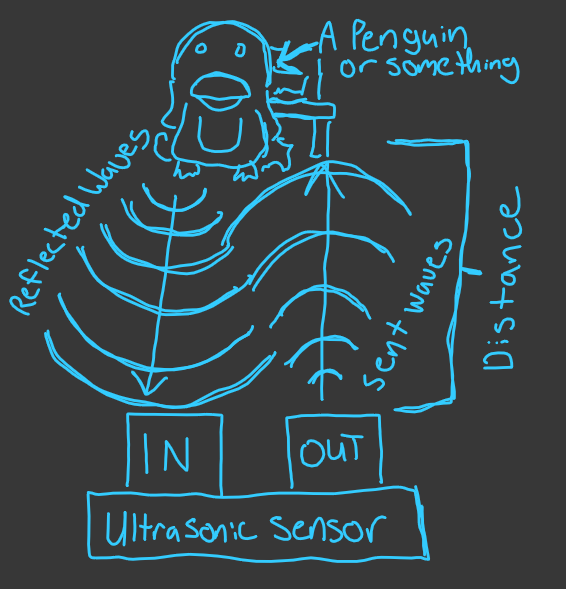 A Penguin
or something
Reflected Waves
Sent Waves
Distance
IN
OUT
Ultrasonic Sensor